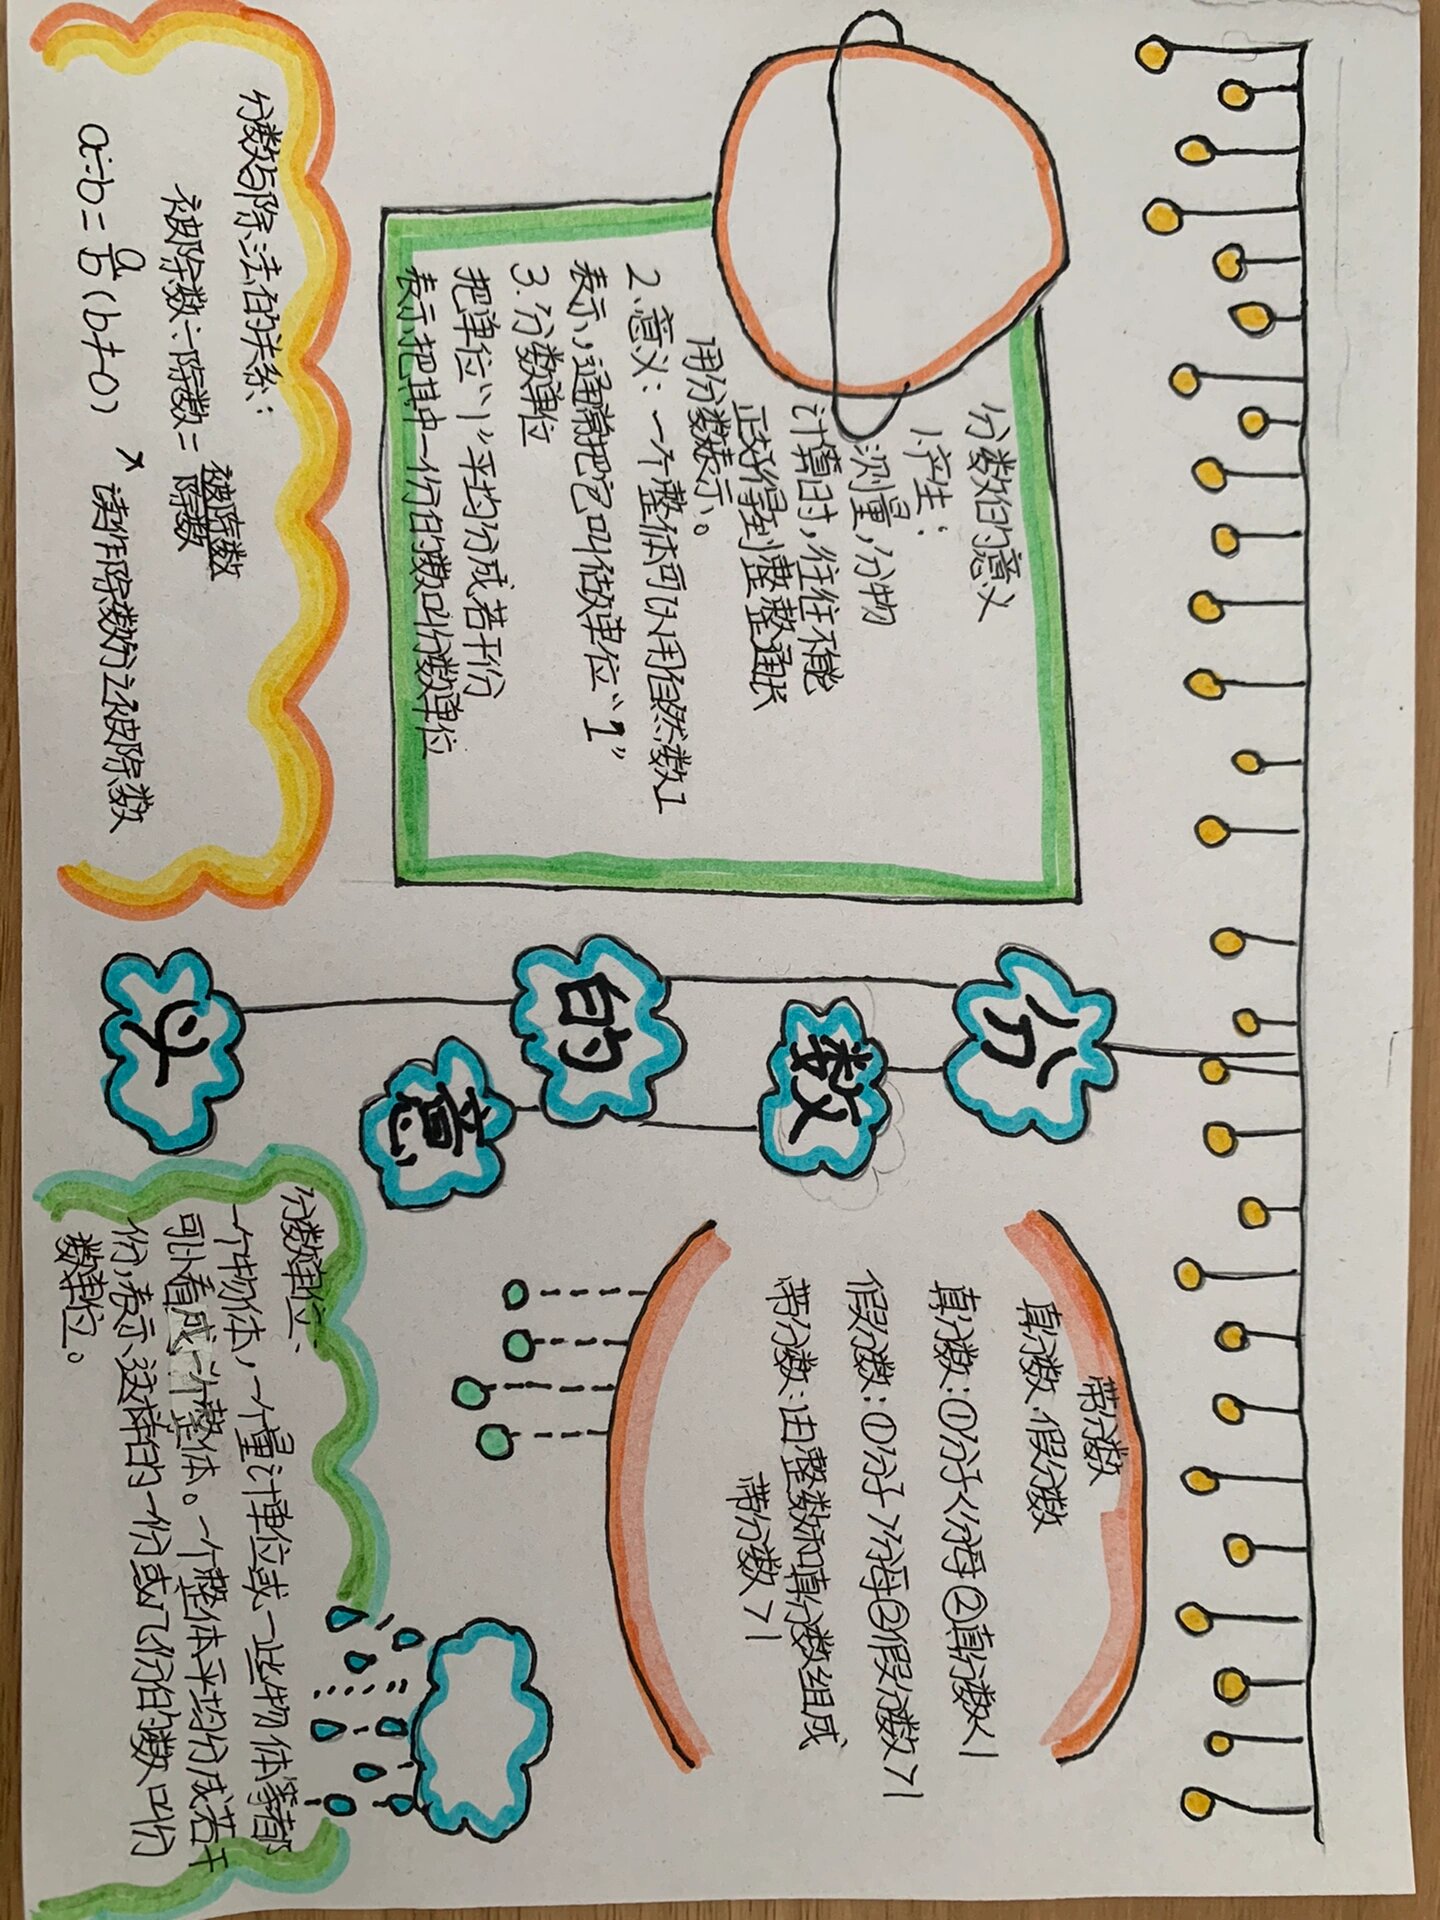 分数的意义
分数的意义
1.产生:
测量,分物
计算时,往往不能
正好得到整整通张
用分数表示。
2.意义:一个整体可以用自然数1
表示,通常把它叫做单位“1”
3.分数单位
把单位“1”平均分成若干份
表示把其中一份的数叫分数单位
分数与除法的关系:
被除数÷除数=被除数/除数
a÷b=a/b(b≠0)
读作除数分之被除数
带分数
真分数 假分数
真分数:①分子<分母②真分数<1
假分数:①分子>分母②假分数>1
带分数:由整数和真分数组成
带分数>1
分数单位:
一个物体,一个量计单位或一些物体等都
可以看成一个整体。一个整体平均分成若干
份,表示这样的一份或几份的数叫分
数单位。